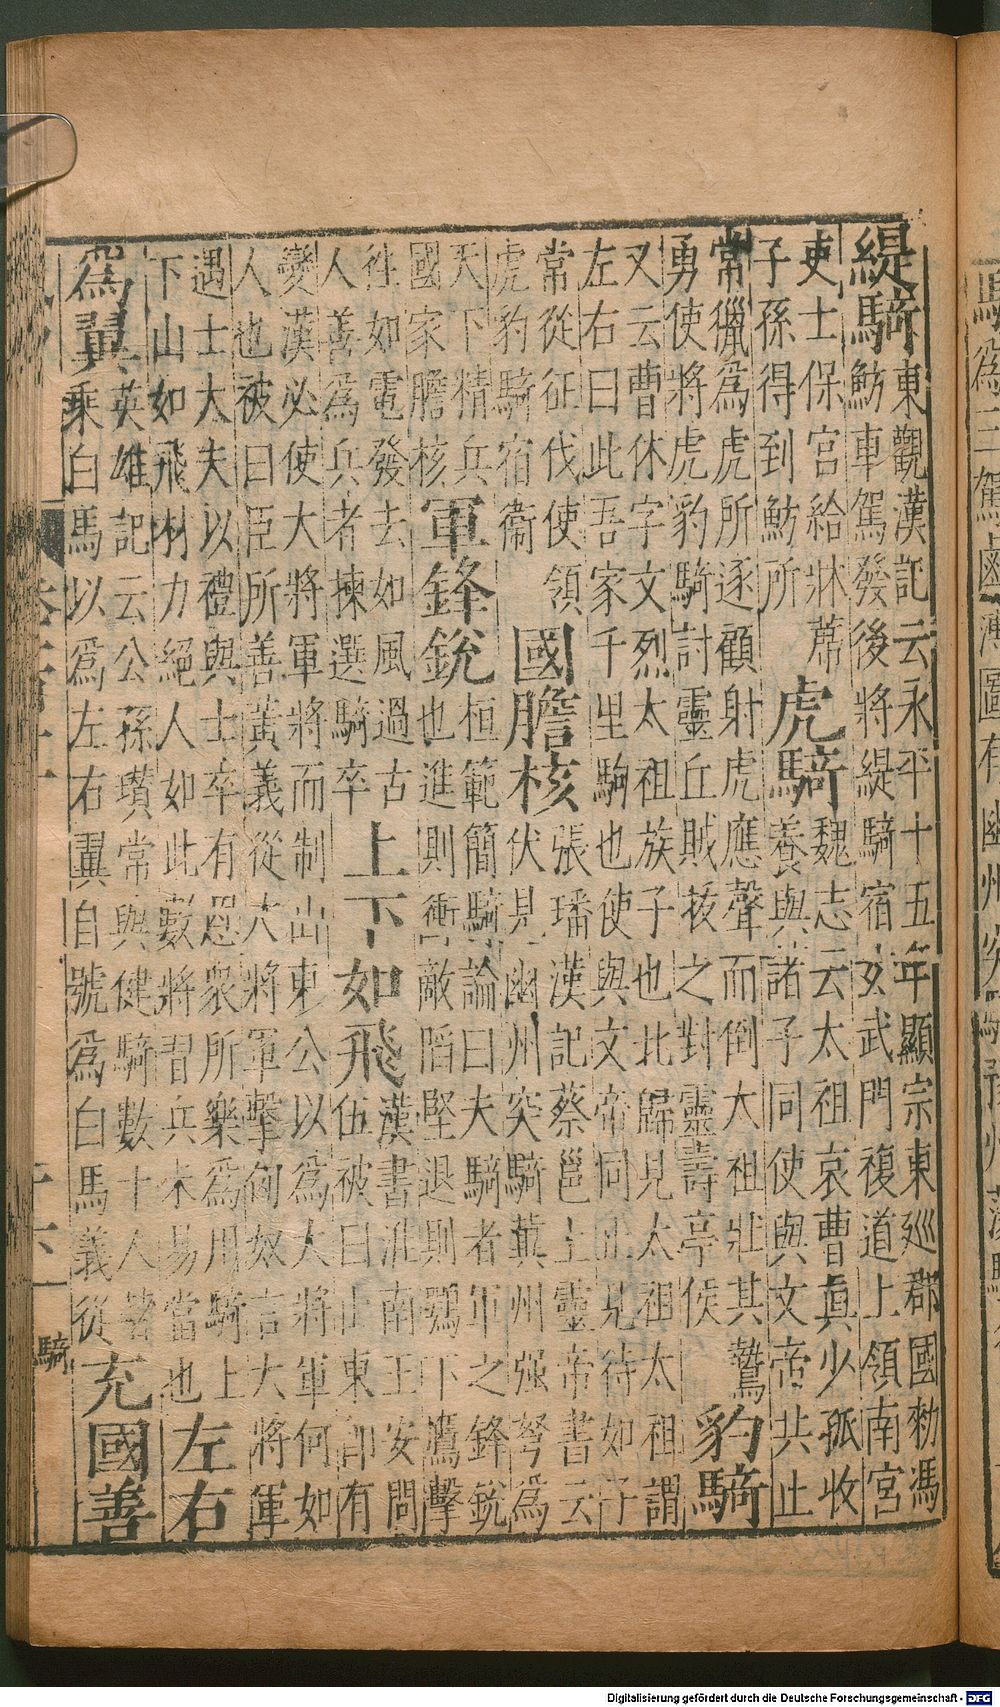 緹騎東觀漢記云永平十五年顯宗東廵郡國勑馮
魴車駕發後將緹騎宿玄武門複道上領南宮
吏士保宮給牀蓆
虎騎魏志云太祖哀曹真少孤收
養與諸子同使與文帝共止
子孫得到魴所
常獵爲虎所逐顧射虎應聲而倒太祖壯其鷙
勇使將虎豹騎討靈丘賊拔之對靈壽亭侯
豹騎
又云曹休字文烈太祖族子也北歸見太祖太祖謂
左右曰此吾家千里駒也使與文帝同止見待如子
常從征伐使領
虎豹騎宿衞
國膽核張璠漢記蔡邕上靈帝書云
伏見幽州突騎冀州强弩爲
天下精兵
國家膽核
軍鋒銳桓範簡騎論曰夫騎者軍之鋒銳
也進則衝敵陷堅退則鶚下鷹擊
往如電發去如風過古
人善爲兵者揀選騎卒
上下如飛漢書淮南王安問
伍被曰山東卽有
變漢必使大將軍將而制山東公以爲大將軍何如
人也被曰臣所善黃義從大將軍擊匈奴言大將軍
遇士大夫以禮與士卒有恩衆所樂爲用騎上
下山如飛材力絕人如此數將習兵未易當也
左右
爲翼英雄記云公孫瓚常與健騎數十人
乘白馬以爲左右翼自號爲白馬義從
充國善
騎
Digitalisierung gefördert durch die Deutsche Forschungsgemeinschaft - DFG